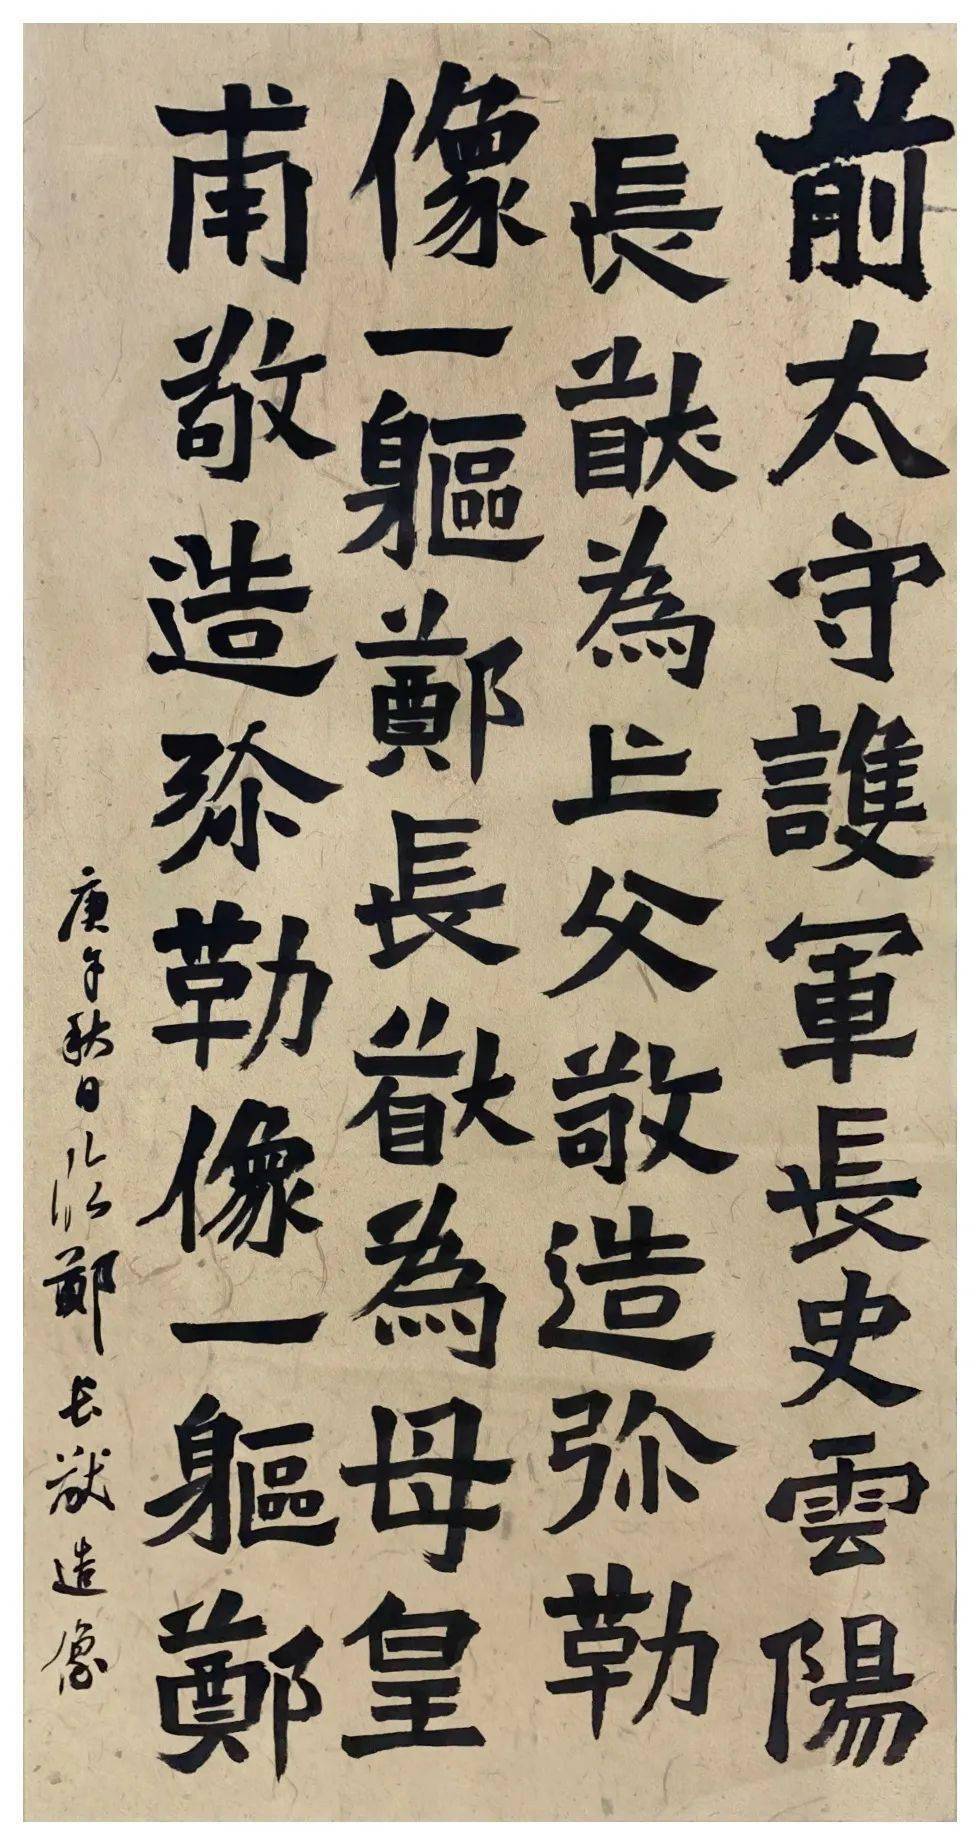 前太守護軍長史雲陽
長猷為亡父敬造弥勒
像一軀鄭長猷為母皇
甫敬造弥勒像一軀鄭
庚午秋日临鄭长猷造像